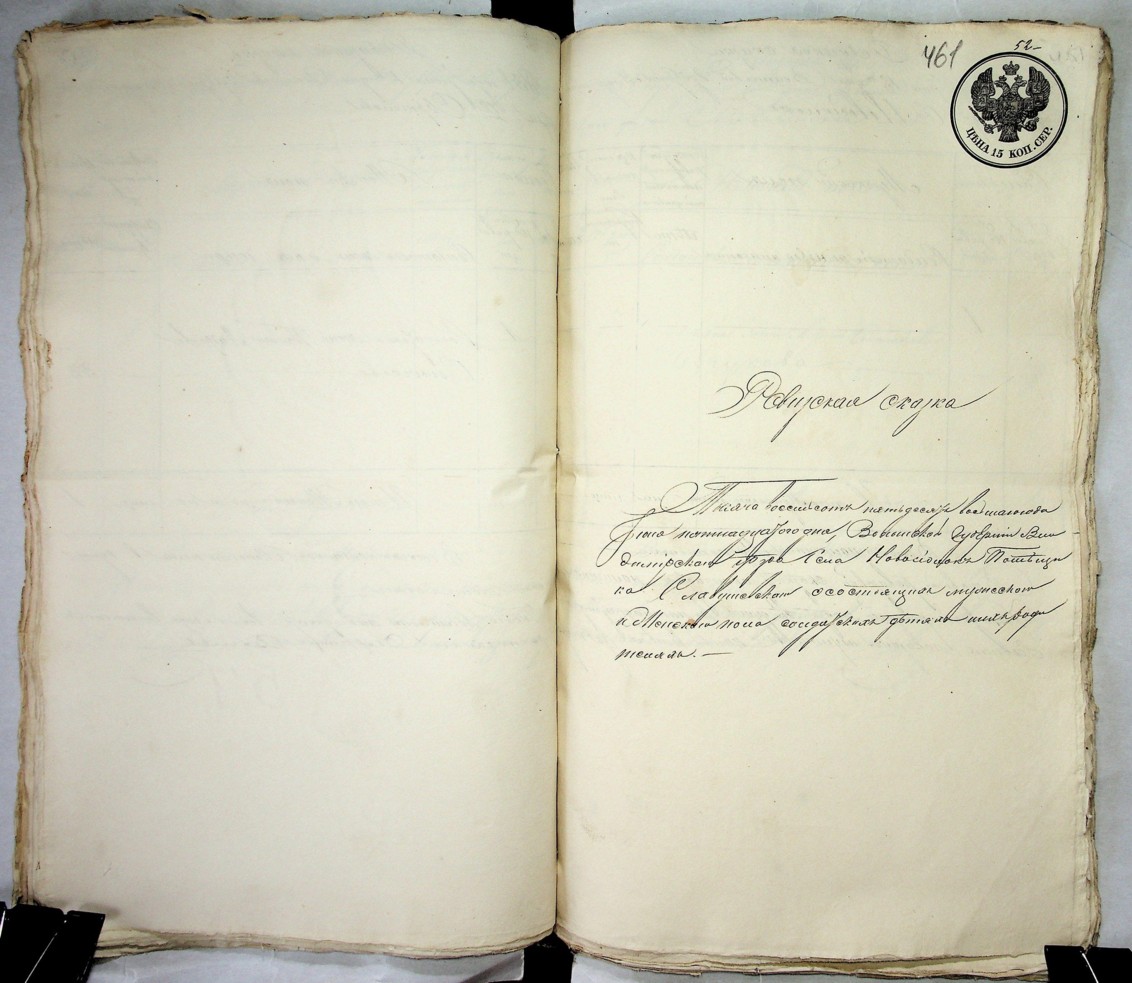 461
52
ЦѢНА 15 КОП. СЕР.
Ревизская сказка
Тысяча восемьсотъ пятьдесятъ восьмаго года
Іюня пятнадцатого дня, Волынской Губерніи Вла-
димірскаго Уѣзда Села Новосіолокъ Помѣщи
ка о состоящихъ мужескаго
и Женскаго пола солдатскихъ дѣтяхъ
телямъ. —